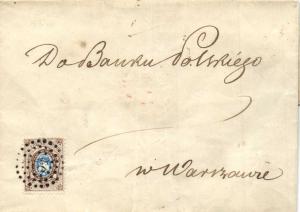 Do Banku Polskiego
w Warszawie